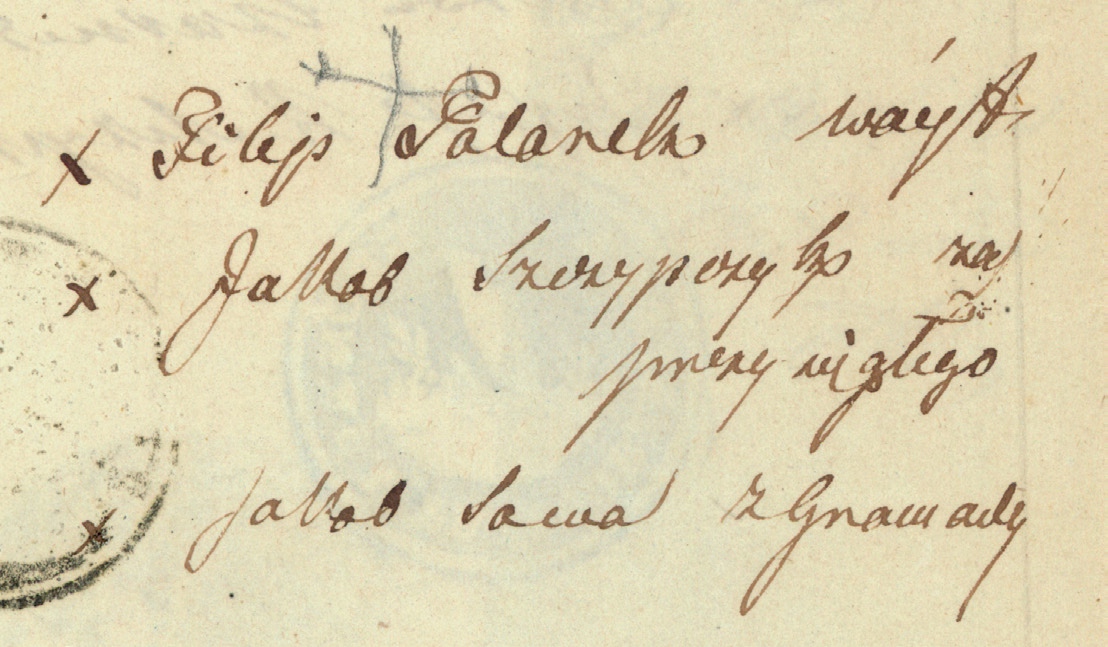 x Filip wáyt
x Jakob Szczypczyk za
przysięgłego
x Jakob Sawa z Gramady